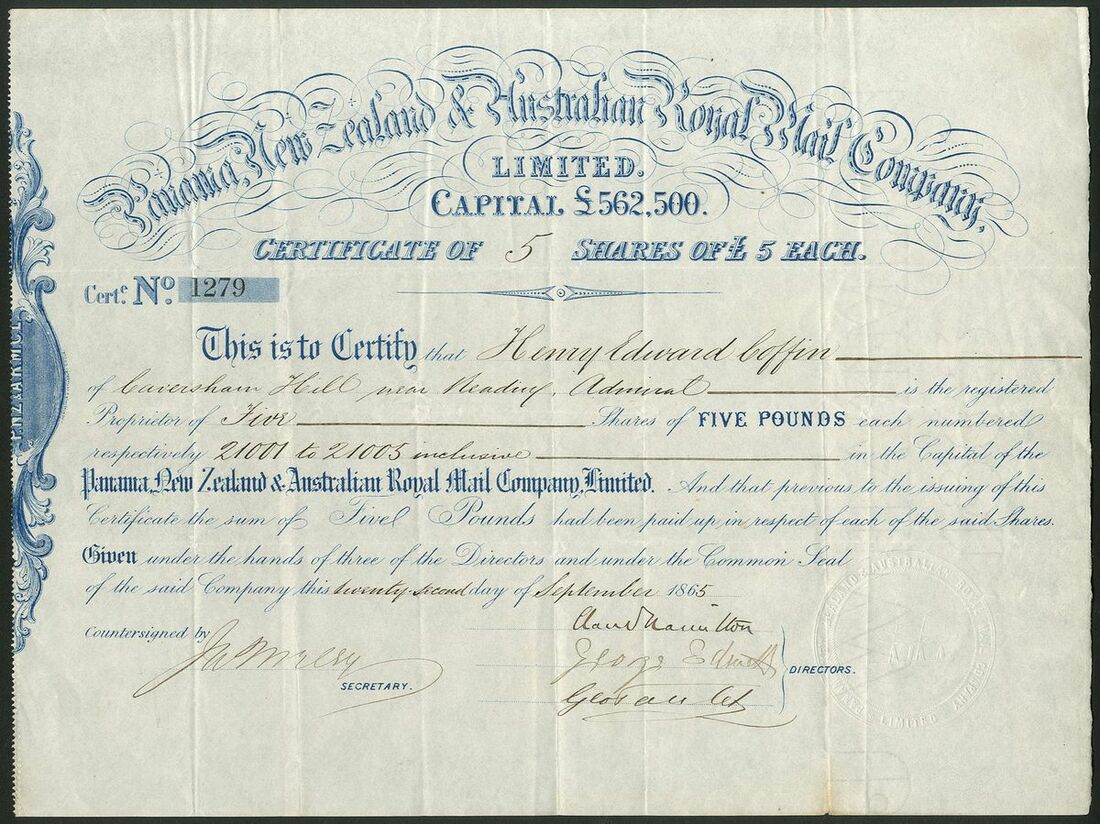 Panama, New Zealand & Australian Royal Mail Company,
LIMITED.
CAPITAL £562,500.
CERTIFICATE OF 5 SHARES OF £ 5 EACH.
Certe. No. 1279
This is to Certify that Henry Edward Coffin
of Caversham Hill near Reading, Admiral is the registered
Proprietor of Five Shares of FIVE POUNDS each numbered
respectively 21001 to 21005 inclusive in the Capital of the
Panama, New Zealand & Australian Royal Mail Company, Limited. And that previous to the issuing of this
Certificate the sum of Five Pounds had been paid up in respect of each of the said Shares.
Given under the hands of three of the Directors and under the Common Seal
of the said Company this twenty-second day of September 1865
Countersigned by
Claud Hamilton
George
DIRECTORS.
SECRETARY.
P.N.Z. & A.R.M.C.L.
ZEALAND & AUSTRALIAN ROYAL MAIL COMPANY
LIMITED